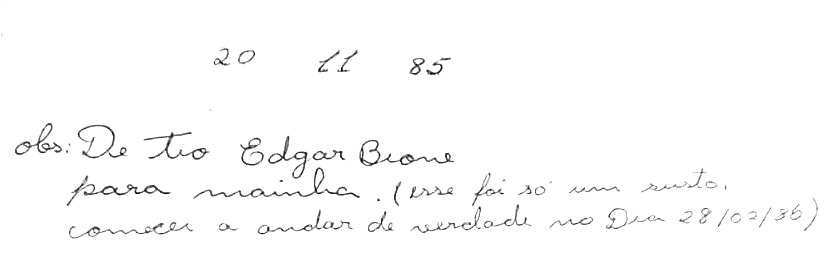 20 11 85
obs: De tio Edgar Bione
para mainha. (esse foi só um susto.
comecei a andar de verdade no Dia 28/02/86)